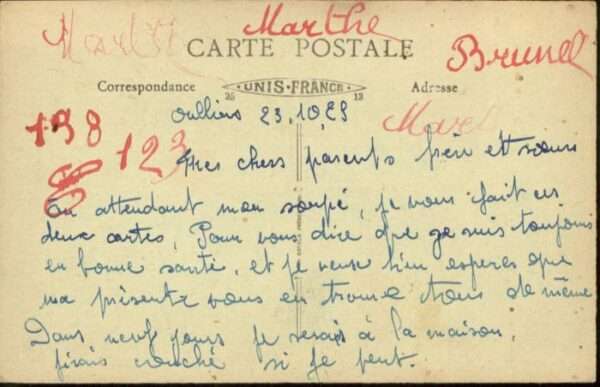 Marthe
CARTE POSTALE
Brunel
Correspondance
UNIS-FRANCE
Adresse
25
13
23.10.29
Mar
198
123
tres chers parents frère et sœurs
En attendant mon soupé, je vous fait ces
deux cartes, Pour vous dire que je suis toujours
en bonne santé, et je veux bien esperer que
ma présente vous en trouve tous de même
Dans neuf jours je serais à la maison,
si je peut.